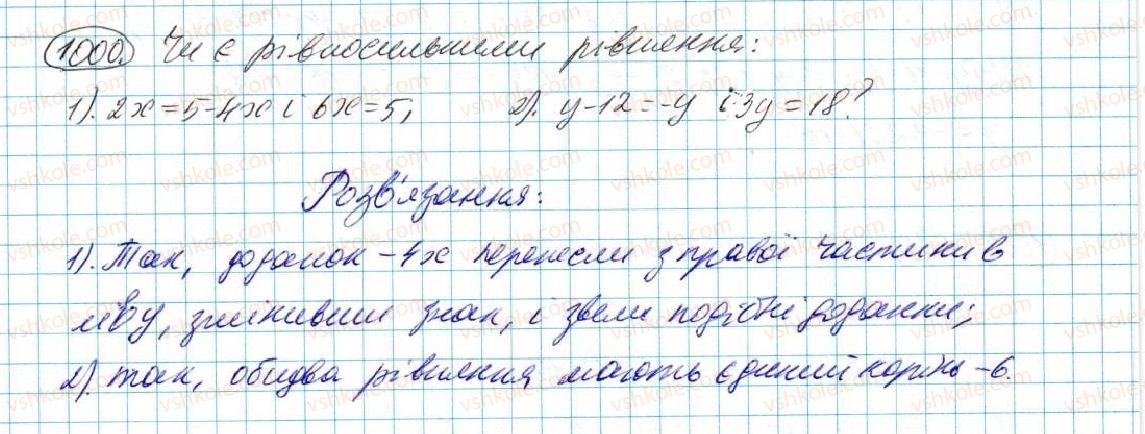 1000. Чи є рівносильними рівняння:
1). 2x = 5 - 4x і 6x = 5; 2). y - 12 = -y і 3y = 18?
Розв'язання:
1). Так, доданок -4x перенесли з правої частини в
ліву, змінивши знак, і звели подібні доданки;
2). так, обидва рівняння мають єдиний корінь - 6.